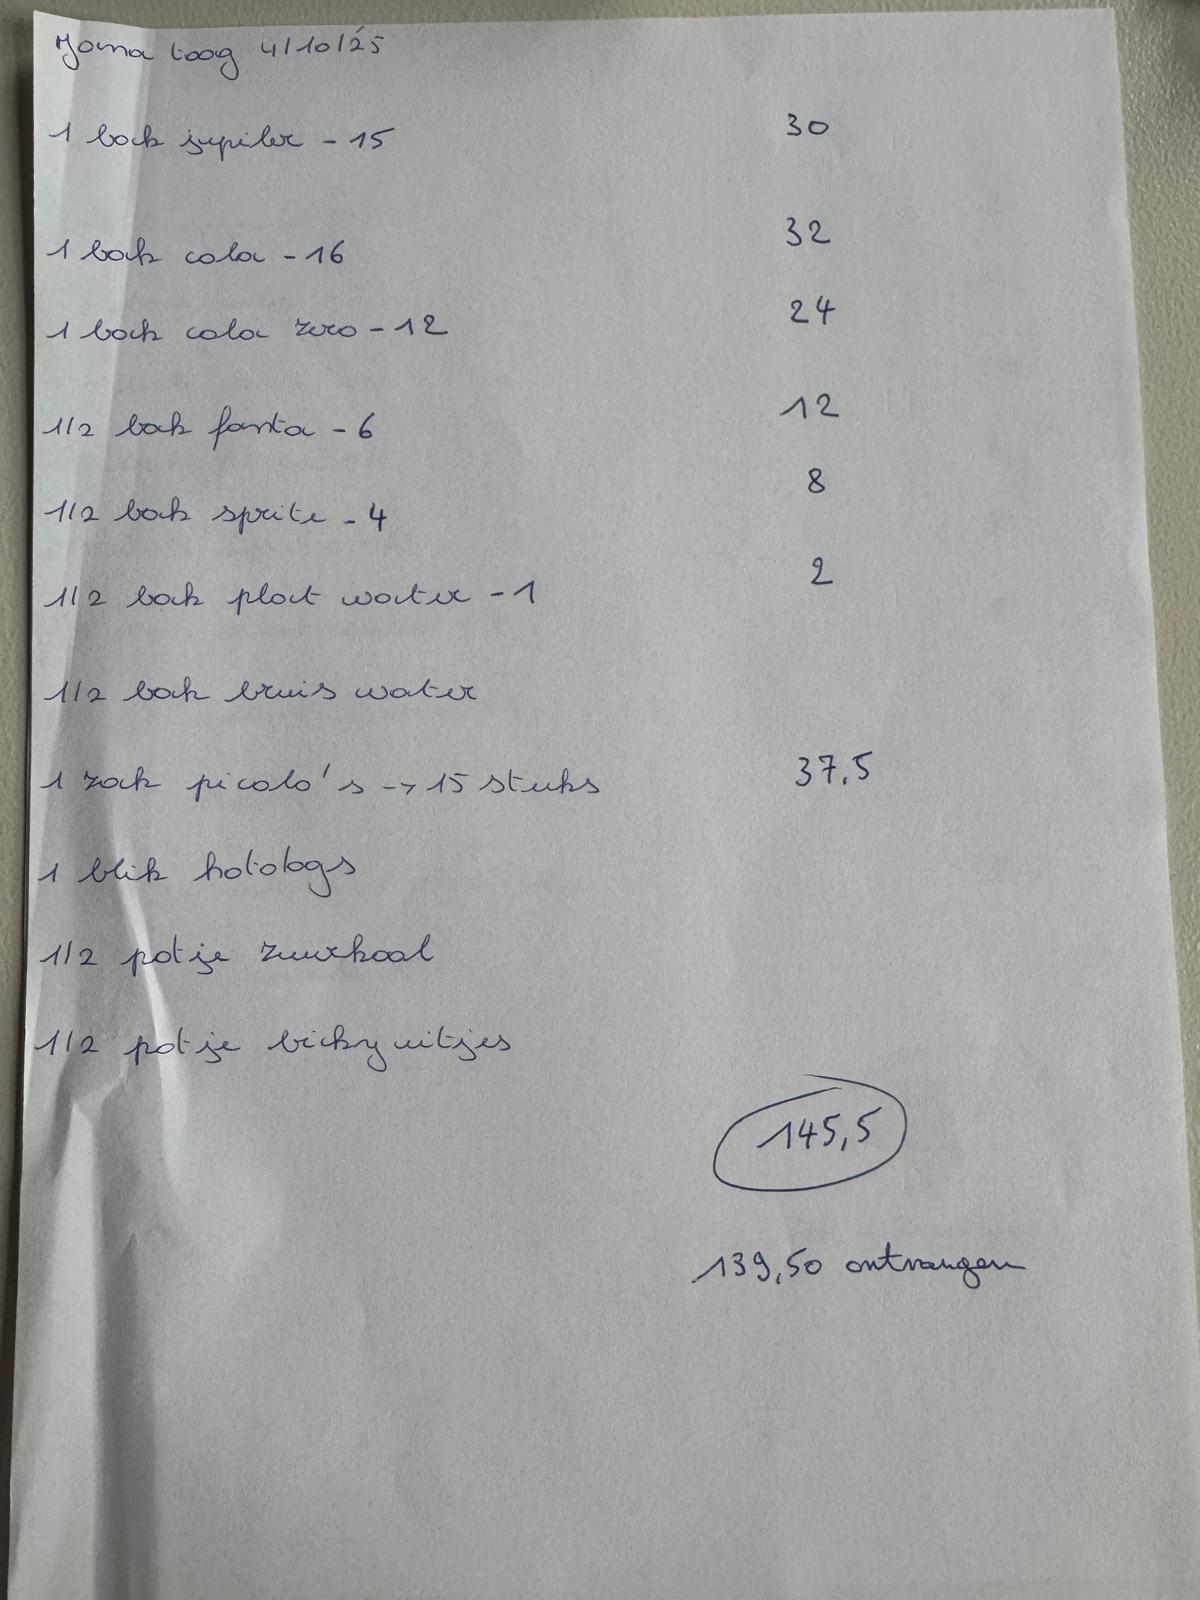 Joma toog 4/10/25
1 bak jupiler - 15 30
1 bak cola - 16 32
1 bak cola zero - 12 24
1/2 bak fanta - 6 12
1/2 bak sprite - 4 8
1/2 bak plat water - 1 2
1/2 bak bruis water
1 zak picolo's → 15 stuks 37,5
1 blik hotdogs
1/2 potje zuurkool
1/2 potje bicky uitjes
145,5
139,50 ontvangen